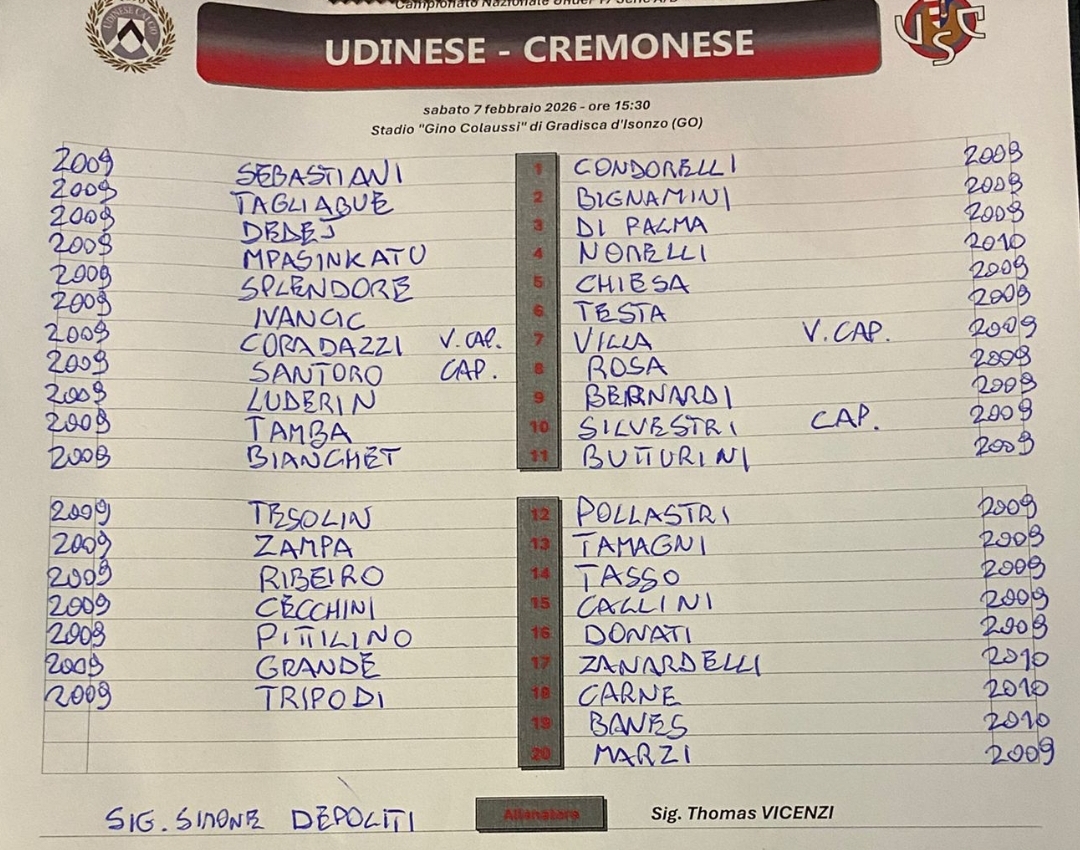 Campionato Nazionale Under 17 Serie A/B
UDINESE - CREMONESE
sabato 7 febbraio 2026 - ore 15:30
Stadio "Gino Colaussi" di Gradisca d'Isonzo (GO)
2009 SEBASTIANI 1 CONDORELLI 2009
2009 TAGLIABUE 2 BIGNAMINI 2009
2009 DEDEJ 3 DI PALMA 2009
2009 MPASINKATU 4 NORELLI 2010
2009 SPLENDORE 5 CHIESA 2009
2009 IVANCIC 6 TESTA 2009
2009 CORADAZZI V. CAP. 7 VILLA V. CAP. 2009
2009 SANTORO CAP. 8 ROSA 2009
2009 LUDERIN 9 BERNARDI 2009
2009 TAMBA 10 SILVESTRI CAP. 2009
2009 BIANCHET 11 BUTTURINI 2009
2009 TESOLIN 12 POLLASTRI 2009
2009 ZAMPA 13 TAMAGNI 2009
2009 RIBEIRO 14 TASSO 2009
2009 CECCHINI 15 CALLINI 2009
2009 PITTILINO 16 DONATI 2009
2009 GRANDE 17 ZANARDELLI 2010
2009 TRIPODI 18 CARNE 2010
19 BANES 2010
20 MARZI 2009
SIG. SIMONE DEPOLITI Allenatore Sig. Thomas VICENZI